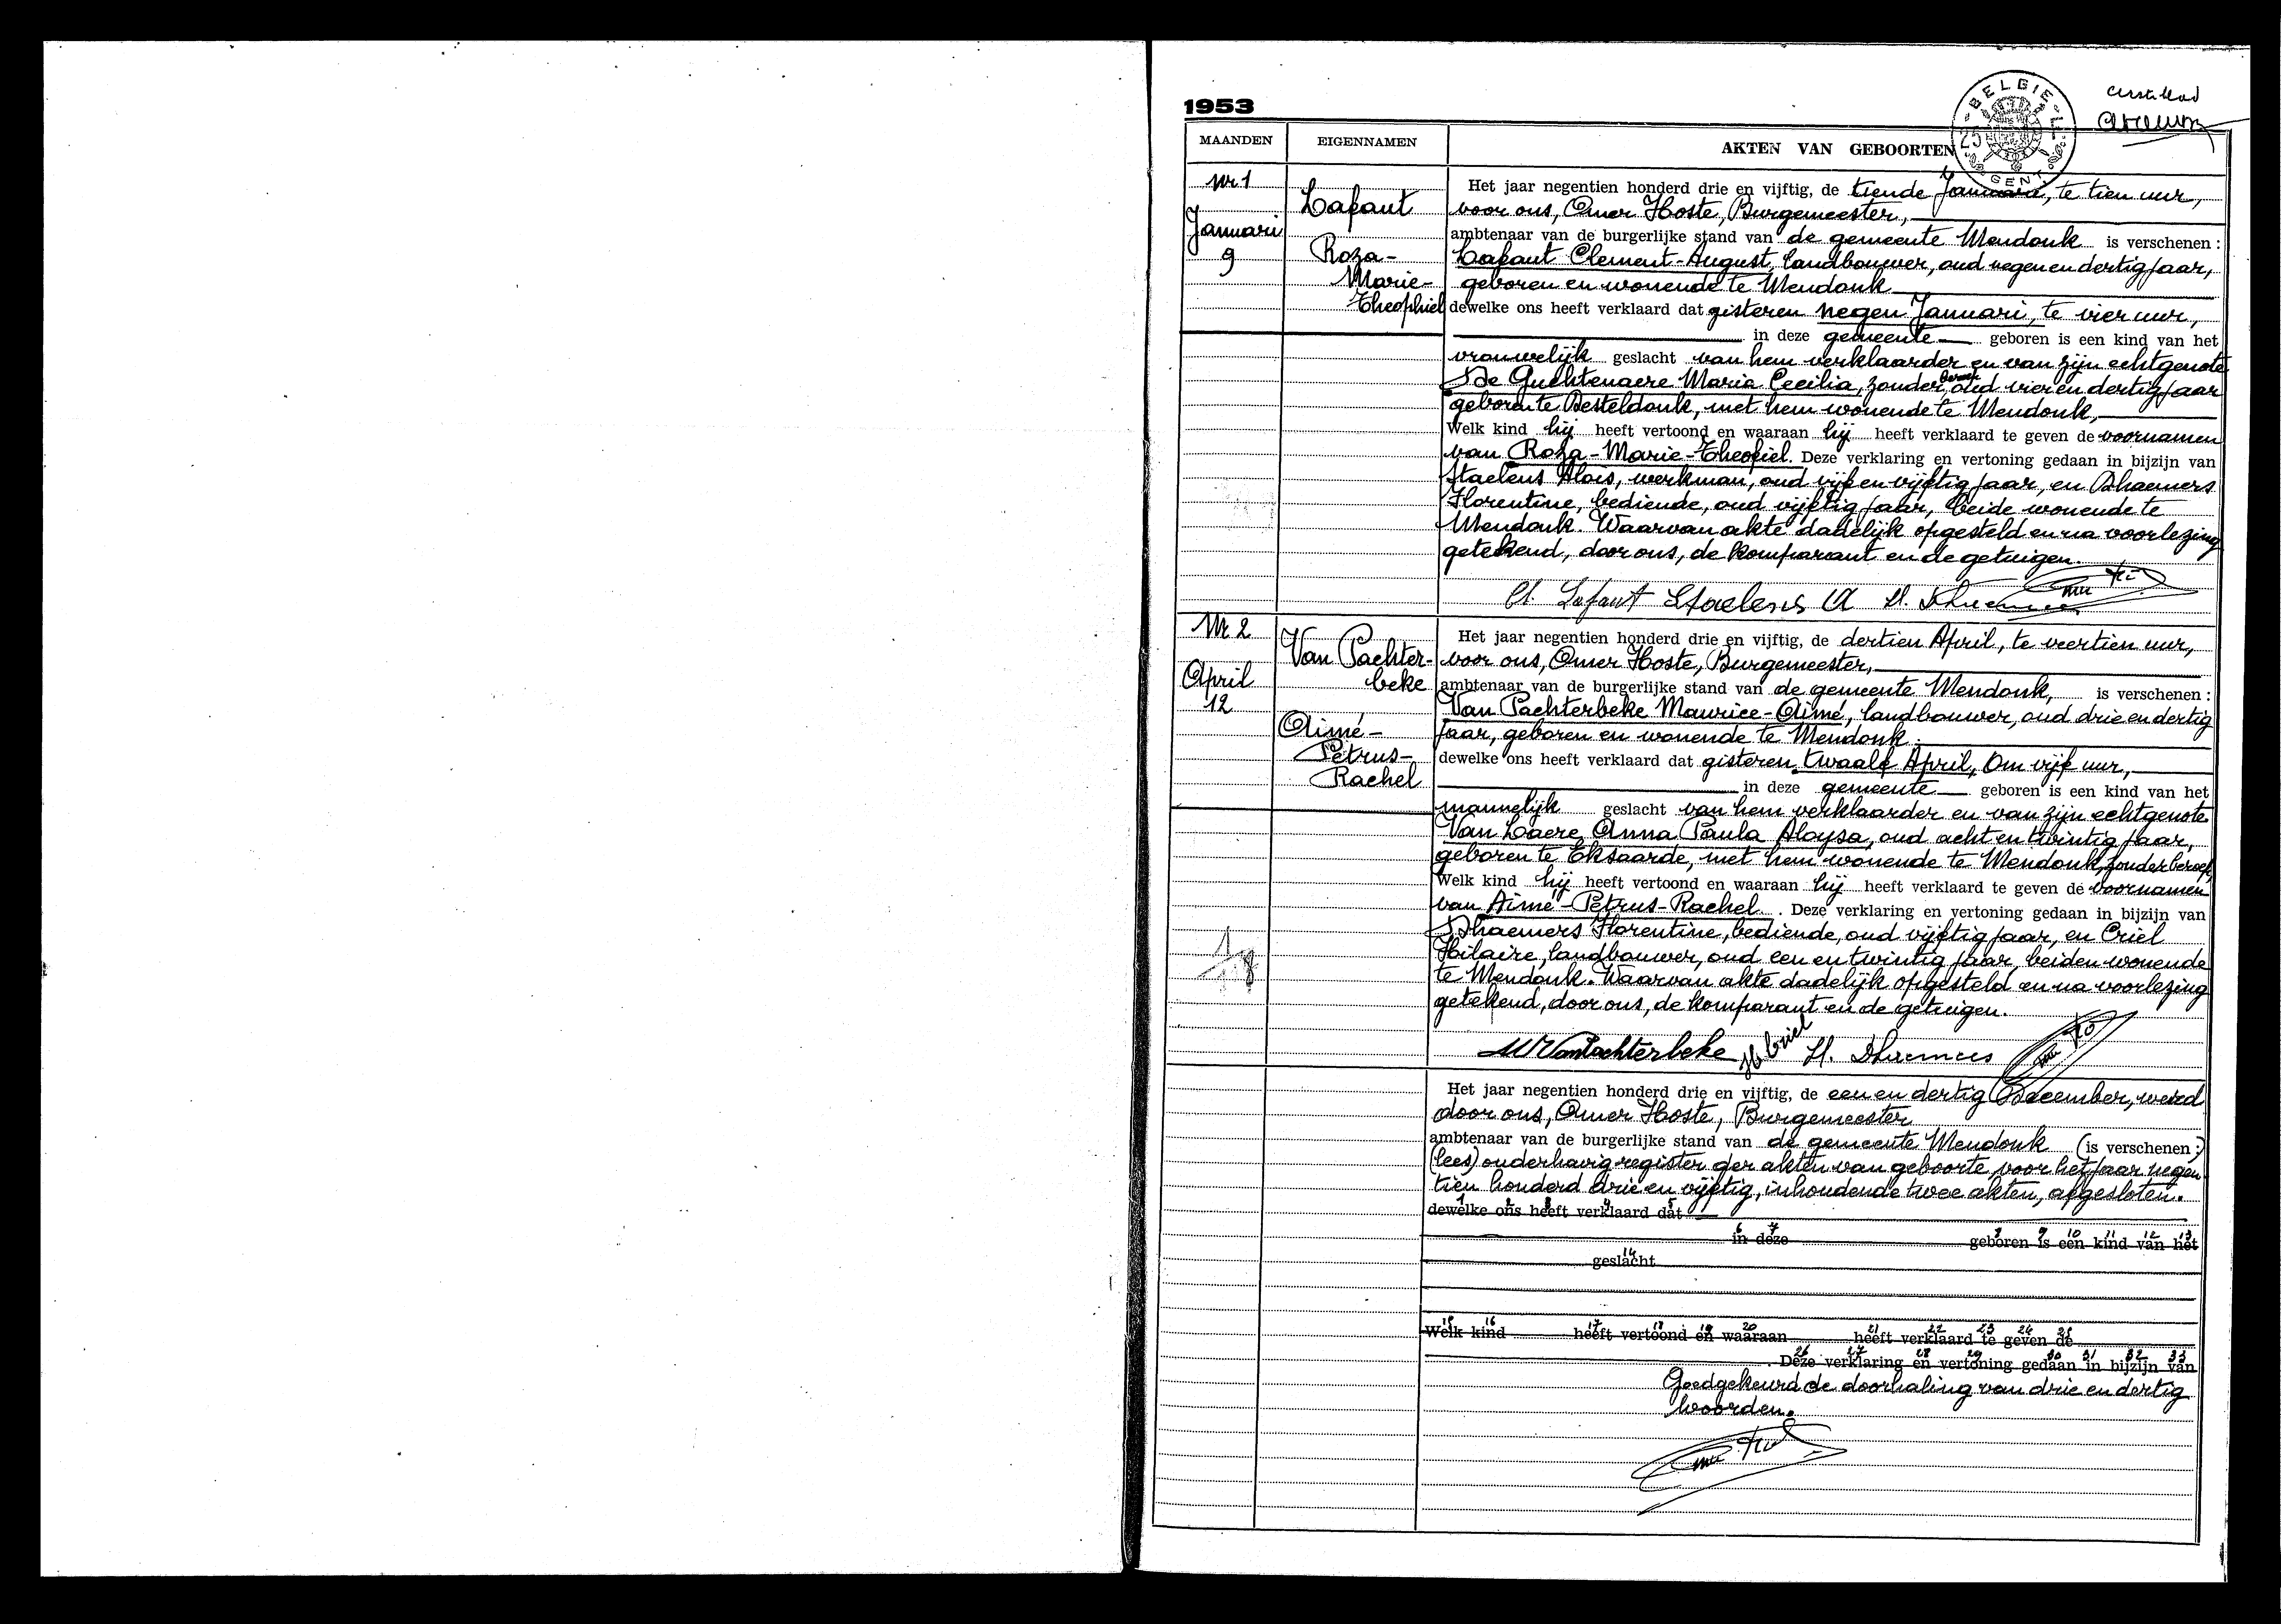 1953
BELGIE
25
GENT
MAANDEN EIGENNAMEN AKTEN VAN GEBOORTEN
Nr 1
Januari
9
Lafaut
Roza-
Marie-
Theophiel
Het jaar negentien honderd drie en vijftig, de tiende Januari, te tien uur,
voor ons, Omer Hoste, Burgemeester,
ambtenaar van de burgerlijke stand van de gemeente Mendonk is verschenen :
Lafaut Clement-August, landbouwer, oud negen en dertig jaar,
geboren en wonende te Mendonk
dewelke ons heeft verklaard dat gisteren negen Januari, te vier uur,
in deze gemeente geboren is een kind van het
vrouwelijk geslacht van hem verklaarder en van zijn echtgenote
De Guchtenaere Maria Cecilia, zonder beroep, oud vier en dertig jaar
geboren te Desteldonk, met hem wonende te Mendonk,
Welk kind hij heeft vertoond en waaraan hij heeft verklaard te geven de voornamen
van Roza-Marie-Theofiel. Deze verklaring en vertoning gedaan in bijzijn van
Staelens Alois, werkman, oud vijf en vijftig jaar, en Dhaemers
Florentine, bediende, oud vijftig jaar, beide wonende te
Mendonk. Waarvan akte dadelijk opgesteld en na voorlezing
getekend, door ons, de komparant en de getuigen.
Cl. Lafaut Staelens A
Nr 2
April
12
Van Pachter-
beke
Aimé-
Petrus-
Rachel
Het jaar negentien honderd drie en vijftig, de dertien April, te veertien uur,
voor ons, Omer Hoste, Burgemeester,
ambtenaar van de burgerlijke stand van de gemeente Mendonk, is verschenen :
Van Pachterbeke Maurice-Aimé, landbouwer, oud drie en dertig
jaar, geboren en wonende te Mendonk.
dewelke ons heeft verklaard dat gisteren twaalf April, Om vijf uur,
in deze gemeente geboren is een kind van het
mannelijk geslacht van hem verklaarder en van zijn echtgenote
Van Laere Anna Paula Aloysa, oud acht en twintig jaar,
geboren te Eksaarde, met hem wonende te Mendonk, zonder beroep,
Welk kind hij heeft vertoond en waaraan hij heeft verklaard te geven de voornamen
van Aimé-Petrus-Rachel. Deze verklaring en vertoning gedaan in bijzijn van
Dhaemers Florentine, bediende, oud vijftig jaar, en Criel
Hilaire, landbouwer, oud een en twintig jaar, beiden wonende
te Mendonk. Waarvan akte dadelijk opgesteld en na voorlezing
getekend, door ons, de komparant en de getuigen.
M VanPachterbeke H Criel Fl. Dhaemers
Het jaar negentien honderd drie en vijftig, de een en dertig December, werd
door ons, Omer Hoste, Burgemeester
ambtenaar van de burgerlijke stand van de gemeente Mendonk (is verschenen :)
(lees) onderhavig register der akten van geboorte, voor het jaar negen-
tien honderd drie en vijftig, inhoudende twee akten, afgesloten.
1 2 3 4 5
dewelke ons heeft verklaard dat
6 7 8 9 10 11 12 13
in deze geboren is een kind van het
14
geslacht
15 16 17 18 19 20 21 22 23 24 25
Welk kind heeft vertoond en waaraan heeft verklaard te geven de
26 27 28 29 30 31 32 33
Deze verklaring en vertoning gedaan in bijzijn van
Goedgekeurd de doorhaling van drie en dertig
woorden.